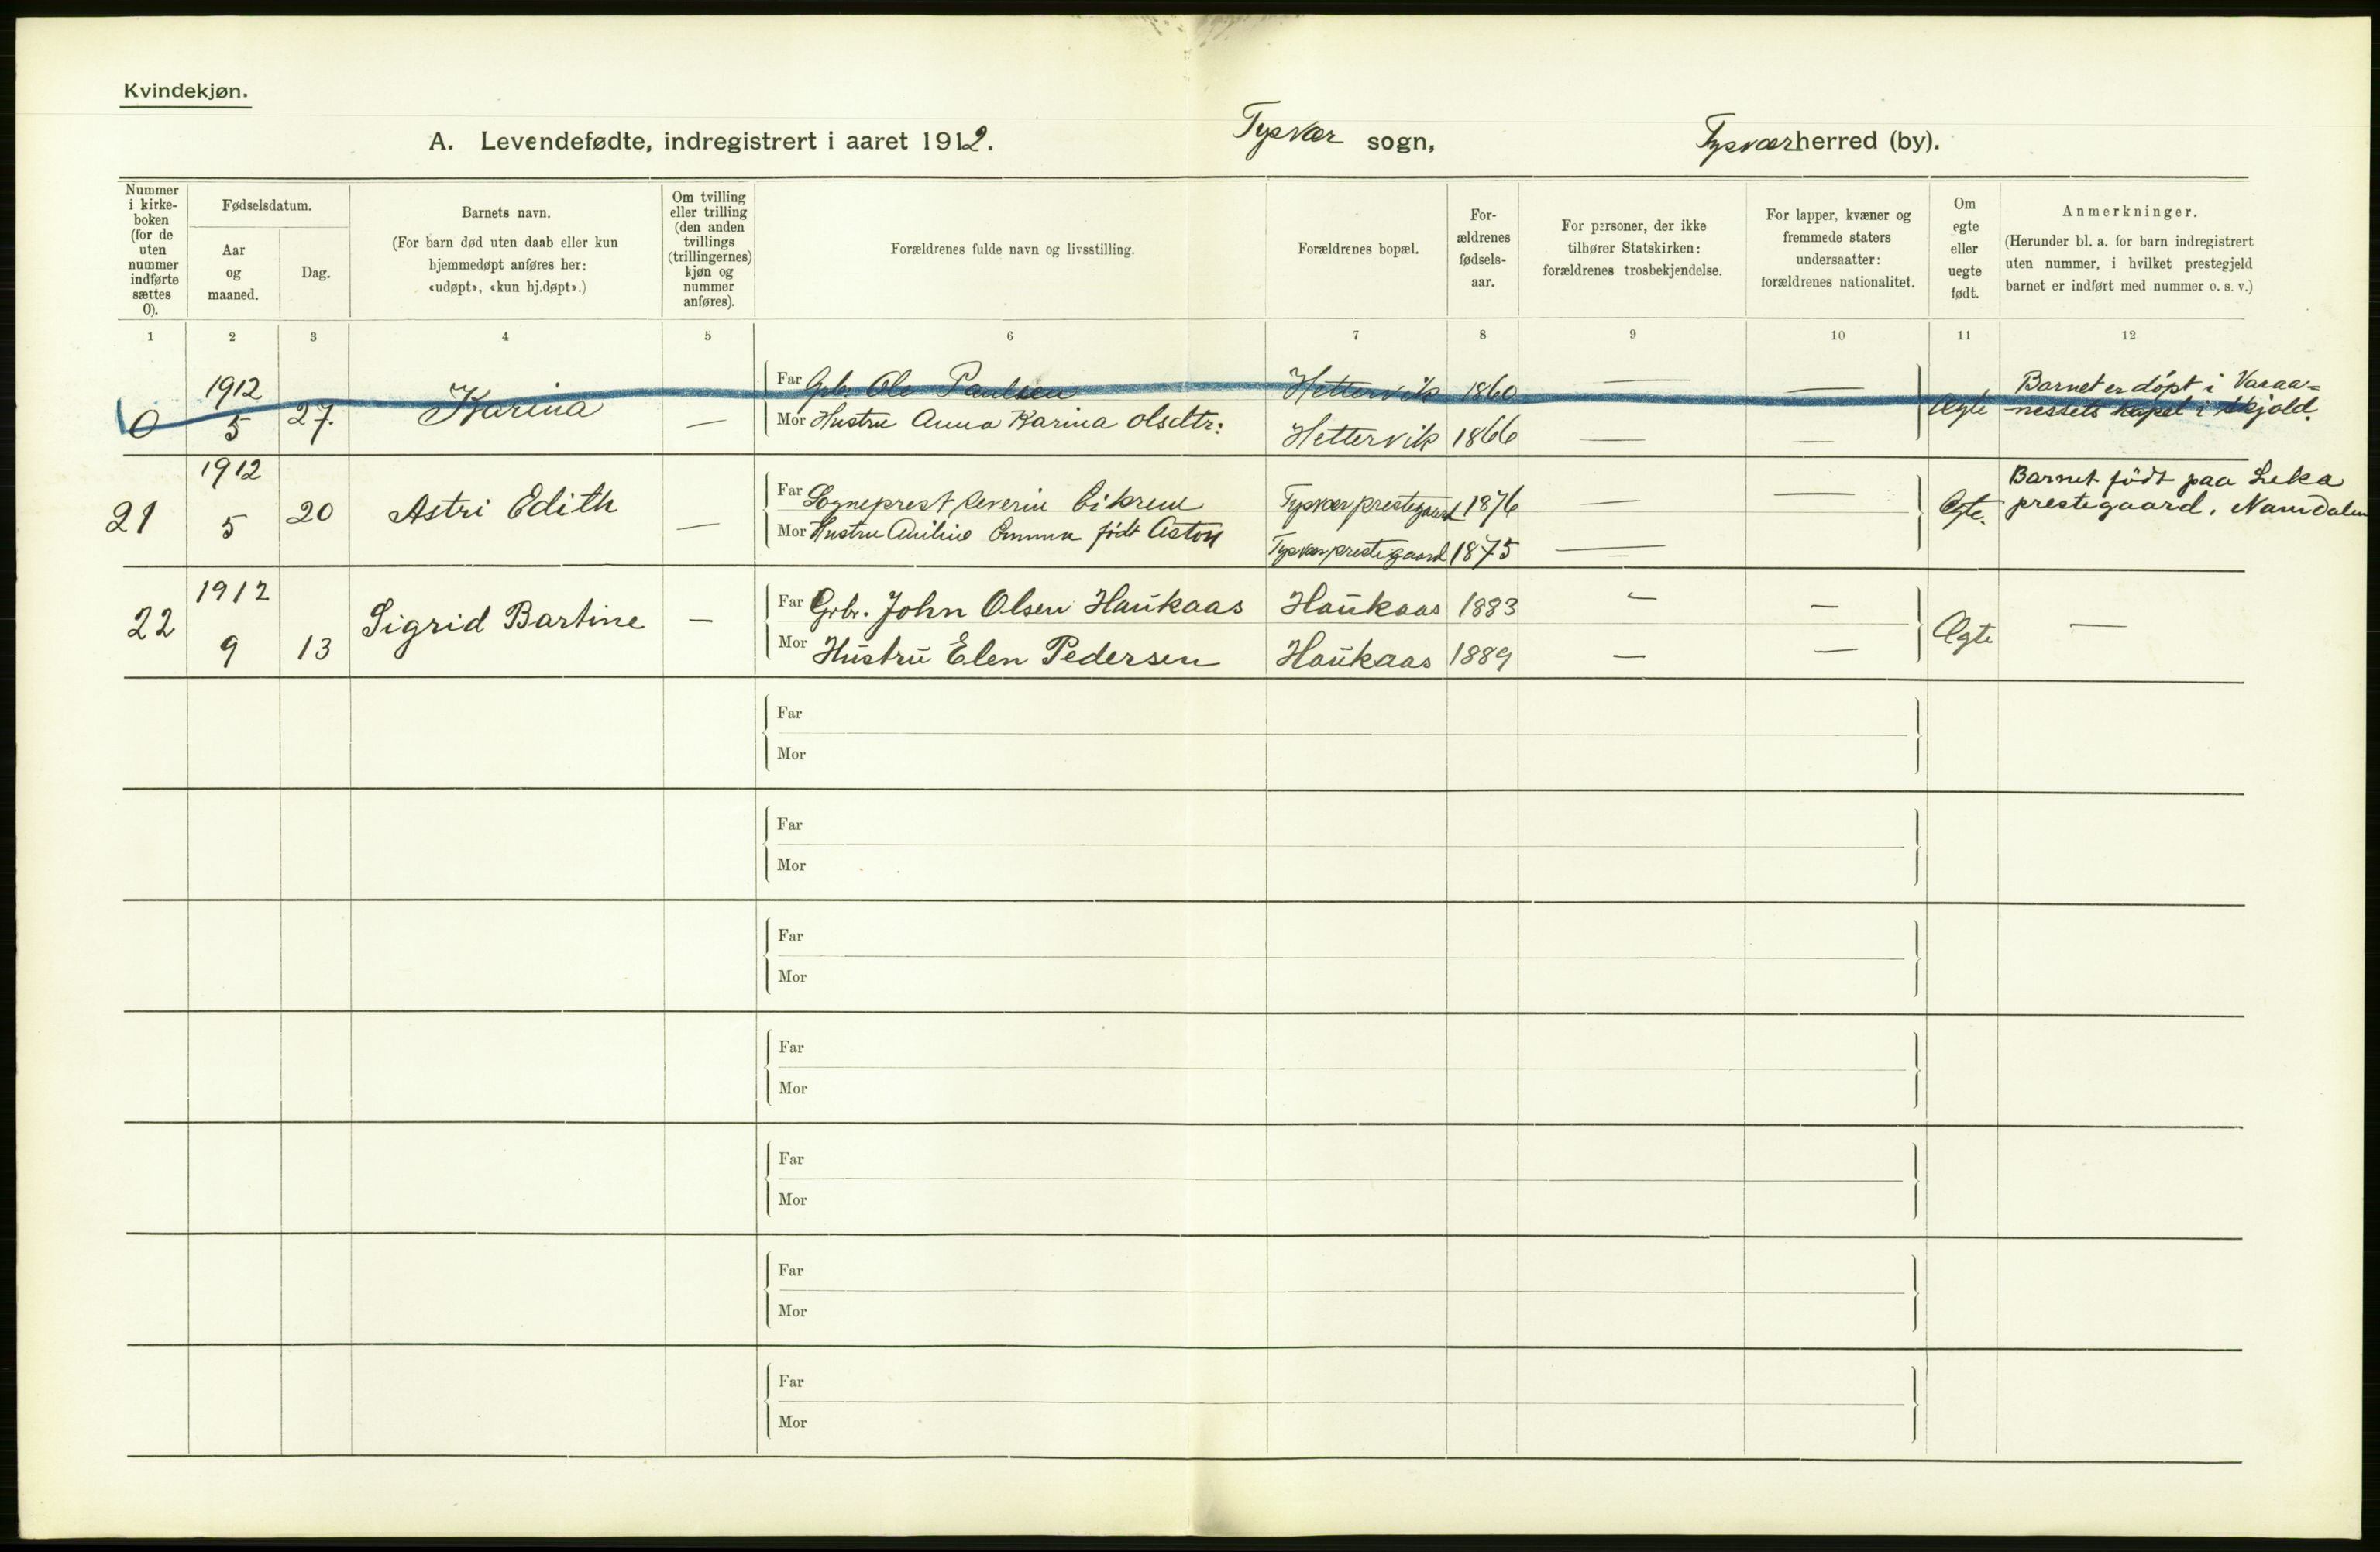 Kvindekjøn.
A. Levendefødte, indregistrert i aaret 1912. Tysvær sogn, Tysvær herred (by).
Nummer i kirke-boken (for de uten nummer indførte sættes 0).
Fødselsdatum.
Aar og maaned.
Dag.
Barnets navn.
(For barn død uten daab eller kun hjemmedøpt anføres her: «udøpt», «kun hj.døpt».)
Om tvilling eller trilling (den anden tvillings (trillingernes) kjøn og nummer anføres).
Forældrenes fulde navn og livsstilling.
Forældrenes bopæl.
For-ældrenes fødsels-aar.
For personer, der ikke tilhører Statskirken: forældrenes trosbekjendelse.
For lapper, kvæner og fremmede staters undersaatter: forældrenes nationalitet.
Om egte eller uegte født.
Anmerkninger.
(Herunder bl. a. for barn indregistrert uten nummer, i hvilket prestegjeld barnet er indført med nummer o. s. v.)
1 2 3 4 5 6 7 8 9 10 11 12
0 1912 5 27. Karina —
Far Grbr. Ole Paulsen Hettervik 1860 — —
Mor Hustru Anna Karina Olsdtr: Hettervik 1866 — —
Ægte
Barnet er døpt i Varaa=
nessets kapel i Skjold.
21 1912 5 20 Astri Edith —
Far Sogneprest Severin Eikrem Tysvær prestegaard 1876 — —
Mor Hustru Emma født Aston Tysvær prestegaard 1875 —
Ægte.
Barnet født paa Leka
prestegaard, Namdalen
22 1912 9 13 Sigrid Bartine —
Far Grbr. John Olsen Haukaas Haukaas 1883 — —
Mor Hustru Elen Pedersen Haukaas 1889 — —
Ægte —
Far
Mor
Far
Mor
Far
Mor
Far
Mor
Far
Mor
Far
Mor
Far
Mor